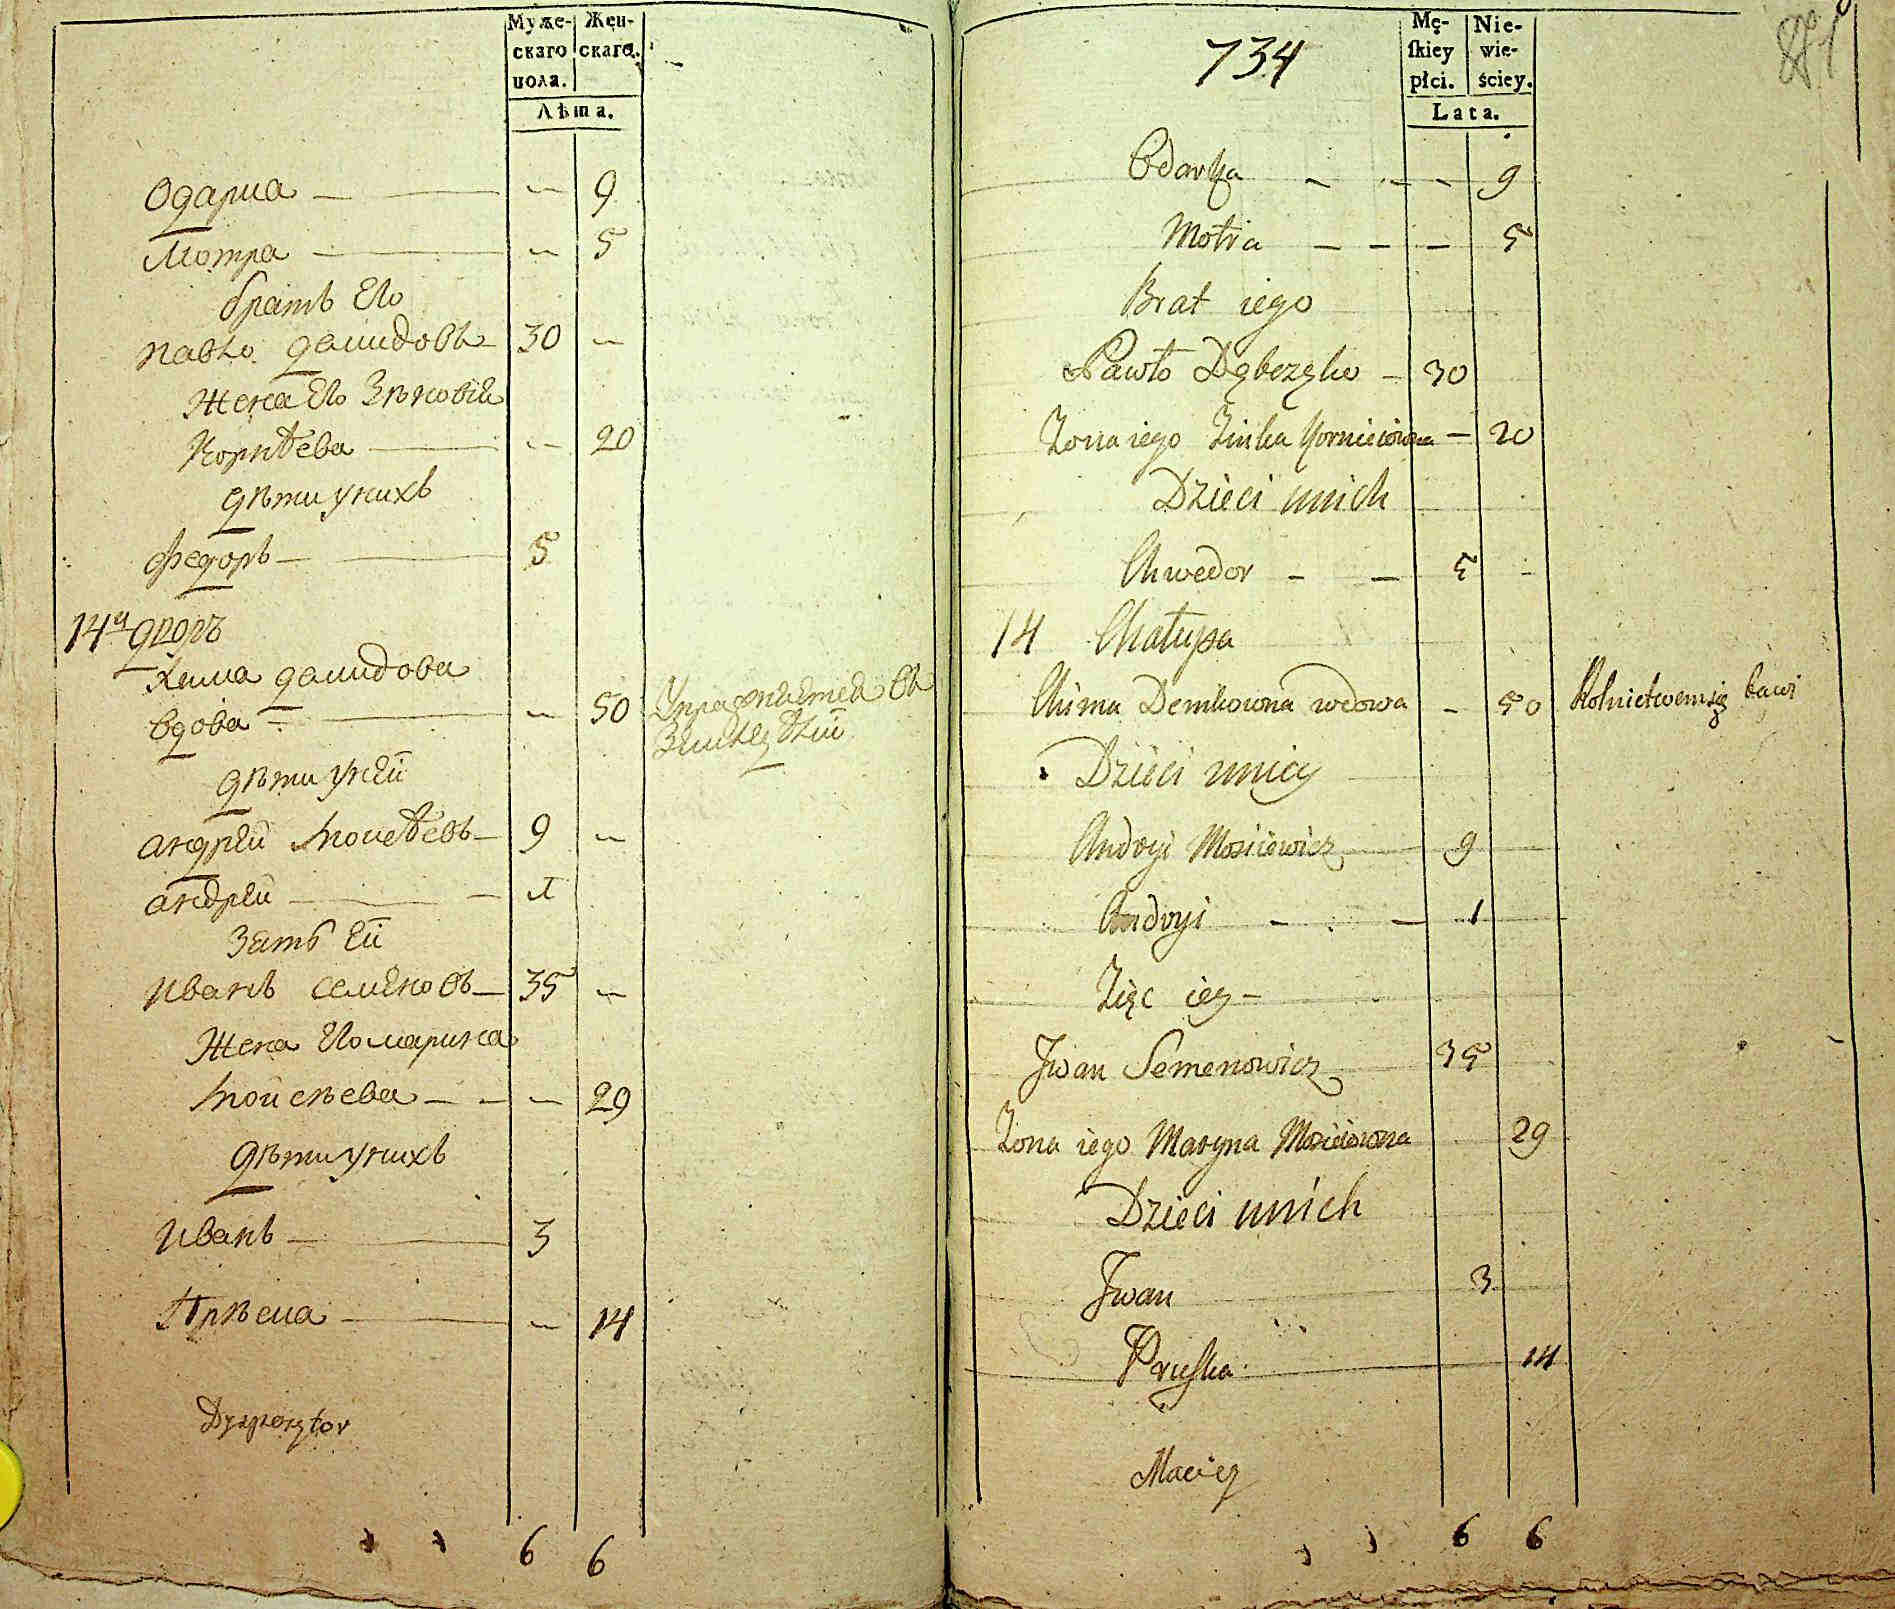 Муже- Жен-
скаго скаго.
пола.
Лѣта.
Одарка — 9
Мотра — 5
братъ Его
Павло Демидовъ 30 —
Жена Его Зѣновія
Корнѣева — 20
дѣти у нихъ
Федоръ — 5
14й дворъ
Хима Демидова
вдова — 50 Упражняется въ
дѣти у ней
Андрей Моисѣевъ 9 —
Андрей — 1
Зять Ей
Иванъ Семеновъ 35 —
Жена Его Марина
Моисѣева — 29
дѣти у нихъ
Иванъ — 3
Прѣска — 14
6 6
734
Mę- Nie-
ſkiey wie-
płci. ściey.
Lata.
Odarka — 9
Motra — 5
Brat iego
Pawło — 30
Zona iego Zinka Korniejowna — 20
Dzieci unich
Chwedor — 5 -
14 Chałupa
Chima Demkowna wdowa - 50 Rolnictwem się bawi
Dzieci uniey
Andryi Mosiiewicz 9
Andryi — 1
Zięc iey
Jwan Semenowicz 35
Zona iego Maryna Mosiiewna 29
Dzieci unich
Jwan 3
Pruska 14
Maciey
6 6